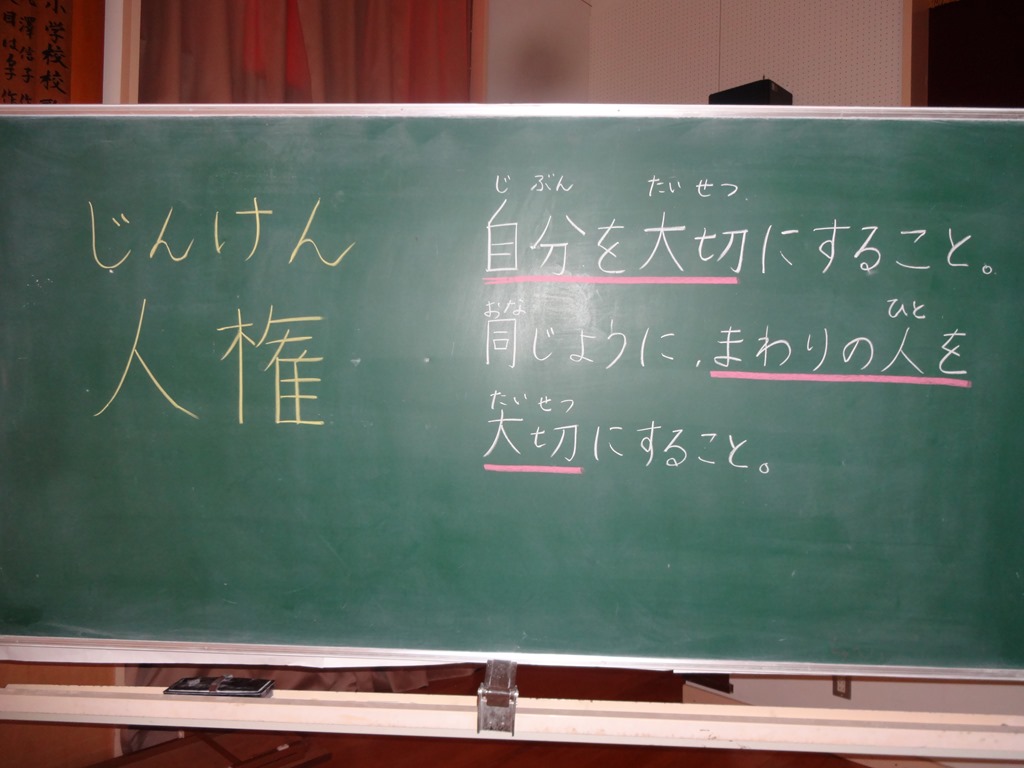 じんけん
人権
じ ぶん たいせつ
自分を大切にすること。
おな ひと
同じように、まわりの人を
たいせつ
大切にすること。
小学校校
澤信子作